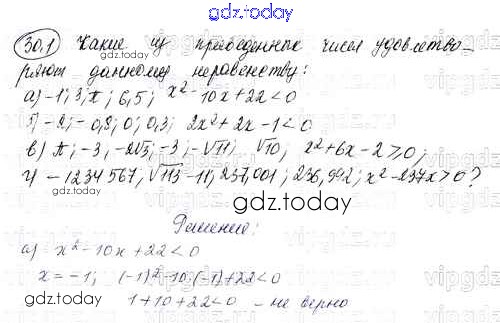 gdz.today
30.1 Какие из приведенных чисел удовлетво-
ряют данному неравенству:
а) -1; 3; π; 6,5; x² - 10x + 22 < 0
б) -2; -0,8; 0; 0,3; 2x² + 2x - 1 < 0
в) π; -3; -2√5; -3; -√11; √10; x² + 6x - 2 ≥ 0;
г) -1234567; √113 - 11; 237,001; 236,992; x² - 237x > 0?
gdz.today
Решение:
а) x² - 10x + 22 < 0
x = -1; (-1)² 10·(-1) + 22 < 0
gdz.today
1 + 10 + 22 < 0 - не верно